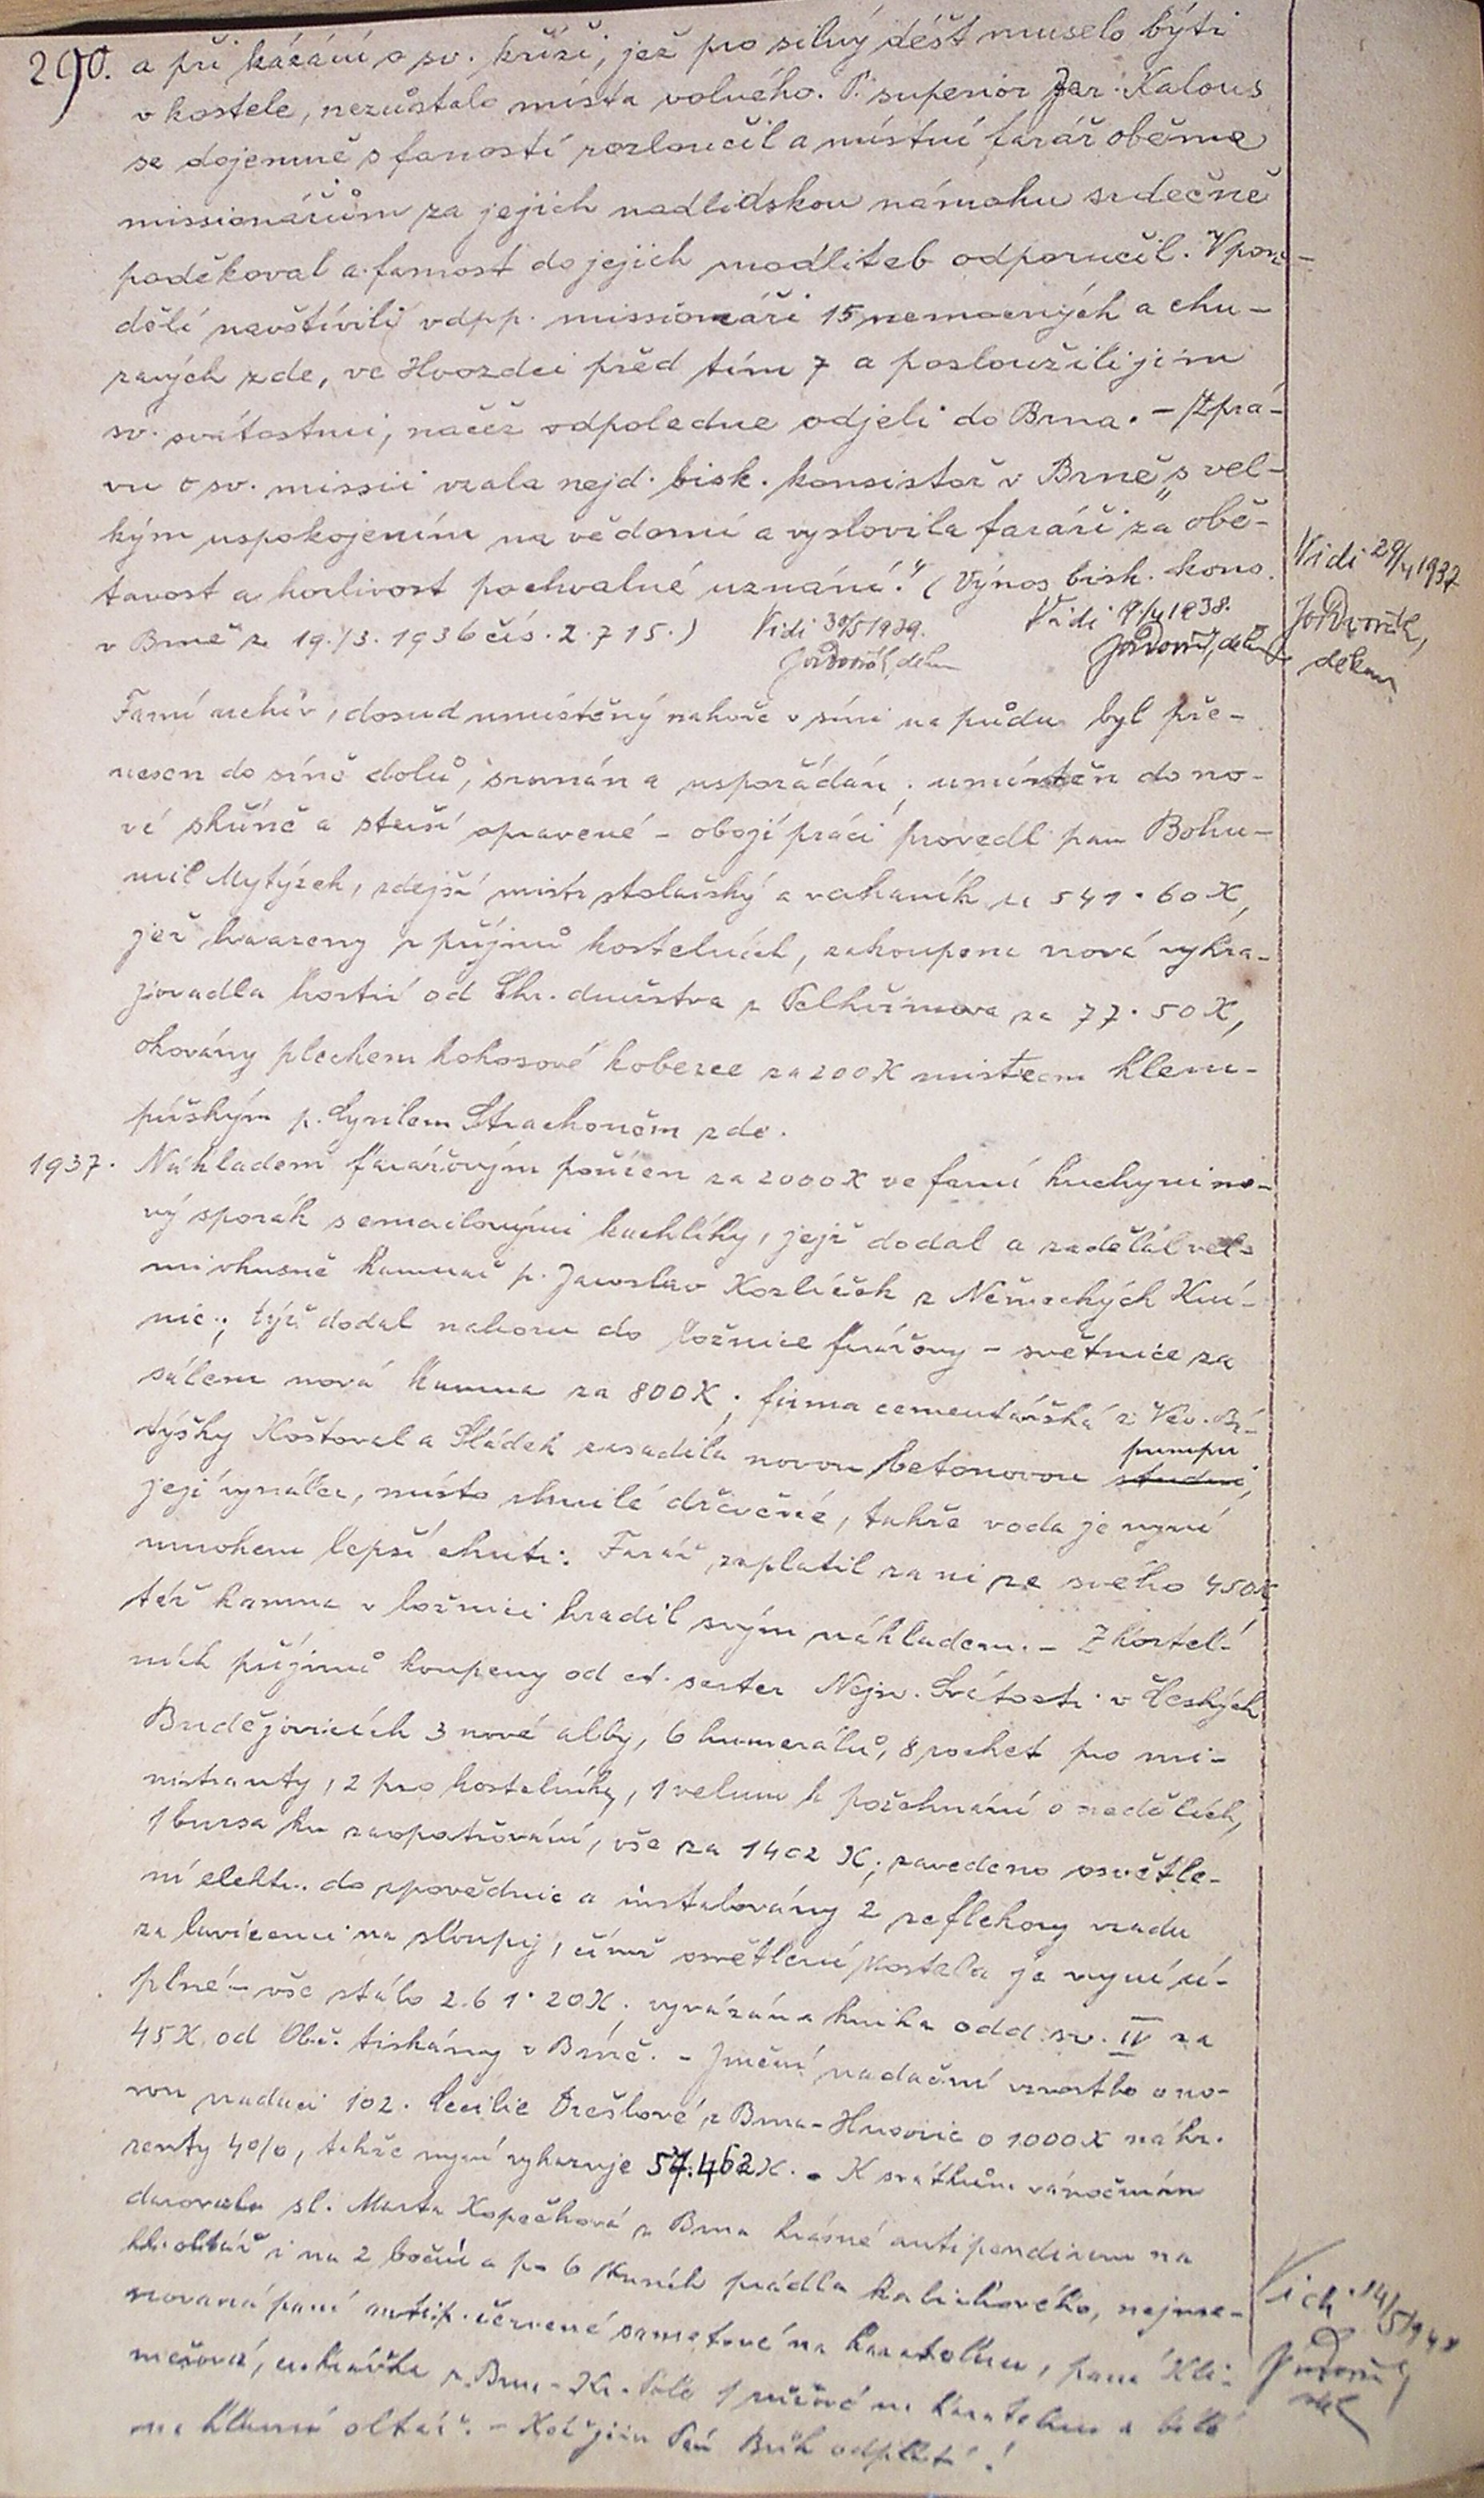 290. a při kázání o sv. kříži, jež pro silný déšť muselo býti
v kostele, nezůstalo místa volného. P. superior Jar. Kalous
se dojemně s farností rozloučil a místní farář oběma
missionářům za jejich nadlidskou námahu srdečně
poděkoval a farnost do jejich modliteb odporučil. V pon-
dělí navštívili vdpp. missionáři 15 nemocných a chu-
ravých zde, ve Hvozdci před tím 7 a posloužili jim
sv. svátostmi, načež odpoledne odjeli do Brna. - Zprá-
vu o sv. missii vzala nejd. bisk. konsistoř v Brně „s vel-
kým uspokojením na vědomí a vyslovila faráři za obě-
tavost a horlivost pochvalné uznání." (Výnos bisk. kons.
v Brně z 19./3. 1936 čís. 2.715.)
Vidi 30/5 1939.
děkan
Vidi 19./4 1938.
děkan
Vidi 29/4 1937
Jos Dvořák,
děkan
Farní archiv, dosud umístěný nahoře v síni na půdu byl pře-
nesen do síně dolů, srovnán a uspořádán, umístěn do no-
vé skříně a starší opravené - obojí práci provedl pan Bohu-
mil Mytýzek, zdejší mistr stolařský a varhaník za 541·60 K,
jež hrazeny z příjmů kostelních, zakoupena nová vykra-
jovadla hostií od Chr. družstva z Pelhřimova za 77·50 K,
okovány plechem kokosové koberce za 200 K mistrem klem-
pířským p. Cyrilem Strachoněm zde.
1937. Nákladem farářovým pořízen za 2000 K ve farní kuchyni no-
vý sporák s emailovými kachlíky, jejž dodal a zadělal vel-
mi vkusně kamnář p. Jaroslav Kozlíček z Německých Kní-
nic; týž dodal nahoru do ložnice farářovy - světnice za
sálem nová kamna za 800 K; firma cementářská z Vev. Bí-
týšky Košťoval a Sládek zasadila novou betonovou studni, pumpu
její, místo shnilé dřevěné, takže voda je nyní
mnohem lepší chuti. Farář zaplatil za ni ze svého 450 K
též kamna v ložnici hradil svým nákladem. - Z kostel-
ních příjmů koupeny od ct. sester Nejsv. Svátosti v Českých
Budějovicích 3 nové alby, 6 humerálů, 8 rochet pro mi-
nistranty, 2 pro kostelníky, 1 velum k požehnání o nedělích,
1 bursa ku zaopatřování, vše za 1402 K; zavedeno osvětle-
ní elektr. do zpovědnic a instalovány 2 reflektory vzadu
za lavicemi na sloupy, čímž osvětlení kostela je nyní ú-
plné - vše stálo 261·20 K; vyvázána kniha odd. sv. IV za
45 K od Obč. tiskárny v Brně. - Jmění nadační vzrostlo o no-
vou nadaci 102. Cecilie Drešlové z Brna-Husovic o 1000 K náhr.
renty 4%, takže nyní vykazuje 57.462 K. - K svátkům vánočním
darovala sl. Marta Kopečková z Brna krásné antipendium na
hl. oltář i na 2 boční a po 6 kusech prádla kalichového, nejme-
novaná paní antip. červené sametové na kazatelnu, paní Kli-
mešová, z Brna-Kr. Pole 1 růžové na kazatelnu a bílé
na hlavní oltář. - Kéž jim Pán Bůh odplatí!
Vidi 14/5 1948
děk